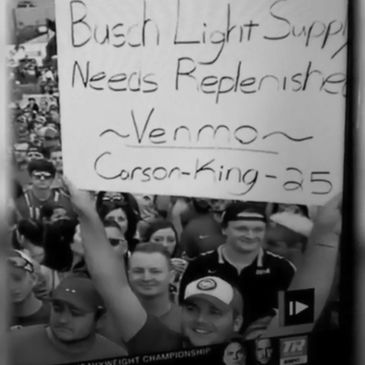 Busch Light Supply
Needs Replenished
~Venmo~
Carson-King-25
HEAVYWEIGHT CHAMPIONSHIP